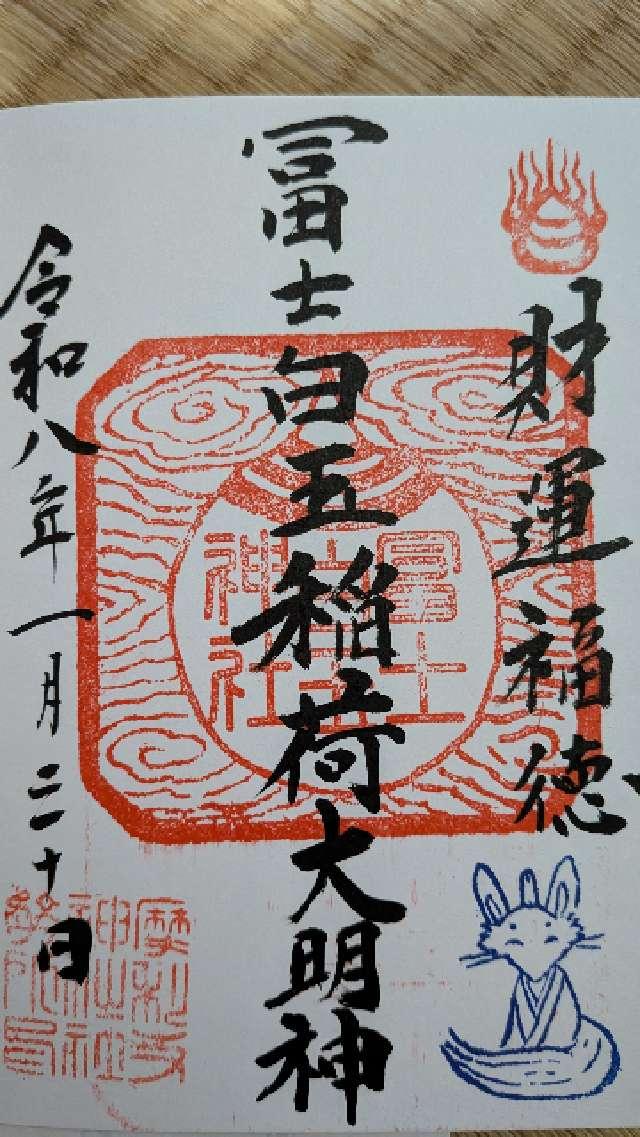 財運福徳
冨士白玉稲荷大明神
令和八年一月二十日
冨士山神社